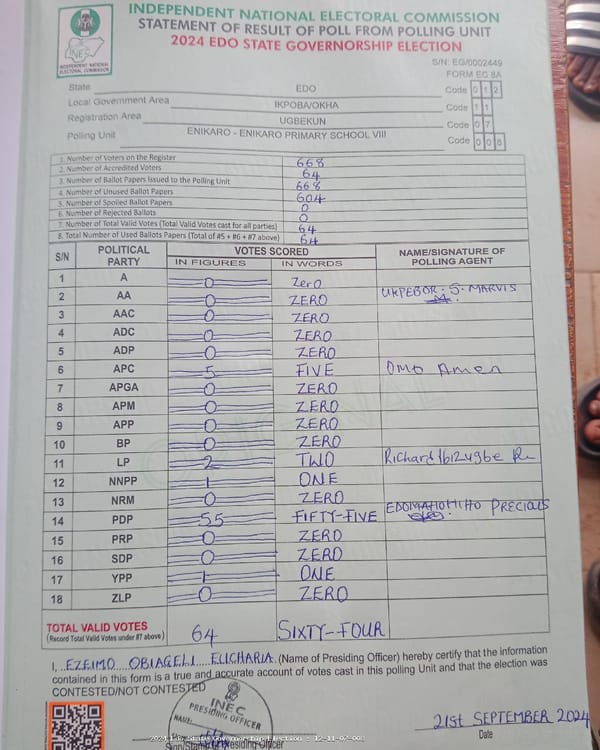 INDEPENDENT NATIONAL ELECTORAL COMMISSION
STATEMENT OF RESULT OF POLL FROM POLLING UNIT
2024 EDO STATE GOVERNORSHIP ELECTION
INEC
INDEPENDENT NATIONAL ELECTORAL COMMISSION
S/N: EG/0002449
FORM EC 8A
State EDO Code 0 1 2
Local Government Area IKPOBA/OKHA Code 1 1
Registration Area UGBEKUN Code 0 7
Polling Unit ENIKARO - ENIKARO PRIMARY SCHOOL VIII Code 0 0 8
1. Number of Voters on the Register 668
2. Number of Accredited Voters 64
3. Number of Ballot Papers Issued to the Polling Unit 668
4. Number of Unused Ballot Papers 604
5. Number of Spoiled Ballot Papers 0
6. Number of Rejected Ballots 0
7. Number of Total Valid Votes (Total Valid Votes cast for all parties) 64
8. Total Number of Used Ballots Papers (Total of #5 + #6 + #7 above) 64
S/N POLITICAL PARTY VOTES SCORED NAME/SIGNATURE OF POLLING AGENT
IN FIGURES IN WORDS
1 A 0 Zero
2 AA 0 ZERO UKPEBOR . S. MARVIS
3 AAC 0 ZERO
4 ADC 0 ZERO
5 ADP 0 ZERO
6 APC 5 FIVE OMO Amen
7 APGA 0 ZERO
8 APM 0 ZERO
9 APP 0 ZERO
10 BP 0 ZERO
11 LP 2 TWO Richard
12 NNPP 1 ONE
13 NRM 0 ZERO
14 PDP 55 FIFTY-FIVE PRECIOUS
15 PRP 0 ZERO
16 SDP 0 ZERO
17 YPP 1 ONE
18 ZLP 0 ZERO
TOTAL VALID VOTES 64 SIXTY-FOUR
(Record Total Valid Votes under #7 above)
I, EZEIMO OBIAGELI ELICHARIA (Name of Presiding Officer) hereby certify that the information
contained in this form is a true and accurate account of votes cast in this polling Unit and that the election was
CONTESTED/NOT CONTESTED
INEC
PRESIDING OFFICER
NAME:
21ST SEPTEMBER 2024
Sign/Stamp of Presiding Officer Date